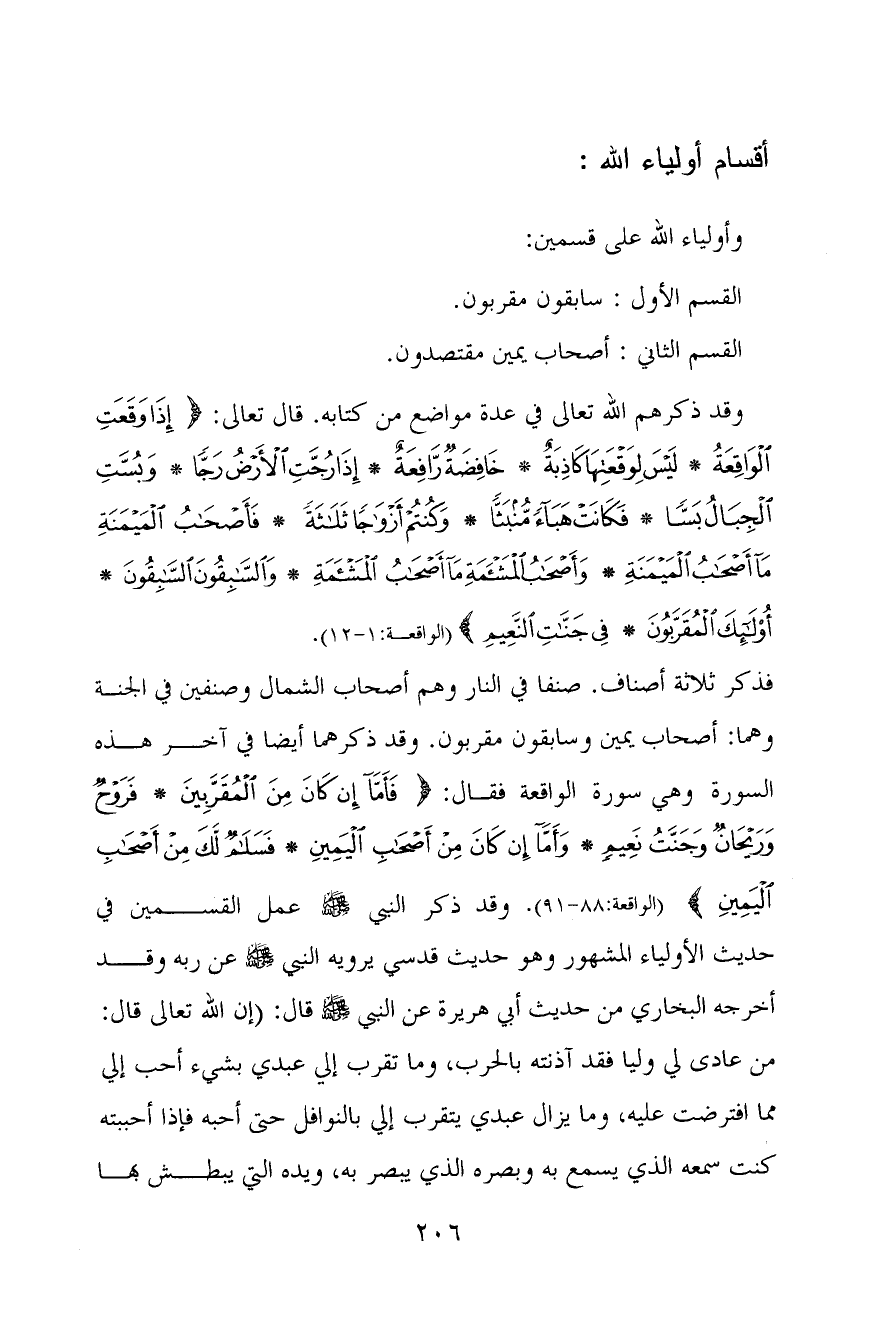 أقسام أولياء الله :
وأولياء الله على قسمين:
القسم الأول : سابقون مقربون.
القسم الثاني : أصحاب يمين مقتصدون.
وقد ذكرهم الله تعالى في عدة مواضع من كتابه. قال تعالى: ﴿ إِذَا وَقَعَتِ
ٱلْوَاقِعَةُ * لَيْسَ لِوَقْعَتِهَا كَاذِبَةٌ * خَافِضَةٌ رَّافِعَةٌ * إِذَا رُجَّتِ ٱلْأَرْضُ رَجًّا * وَبُسَّتِ
ٱلْجِبَالُ بَسًّا * فَكَانَتْ هَبَآءً مُّنۢبَثًّا * وَكُنتُمْ أَزْوَٰجًا ثَلَٰثَةً * فَأَصْحَٰبُ ٱلْمَيْمَنَةِ
مَآ أَصْحَٰبُ ٱلْمَيْمَنَةِ * وَأَصْحَٰبُ ٱلْمَشْـَٔمَةِ مَآ أَصْحَٰبُ ٱلْمَشْـَٔمَةِ * وَٱلسَّٰبِقُونَ ٱلسَّٰبِقُونَ *
أُوْلَٰٓئِكَ ٱلْمُقَرَّبُونَ * فِى جَنَّٰتِ ٱلنَّعِيمِ ﴾ (الواقعـة:١-١٢).
فذكر ثلاثة أصناف. صنفا في النار وهم أصحاب الشمال وصنفين في الجنـة
وهما: أصحاب يمين وسابقون مقربون. وقد ذكرهما أيضا في آخـــر هـــذه
السورة وهي سورة الواقعة فقـال: ﴿ فَأَمَّآ إِن كَانَ مِنَ ٱلْمُقَرَّبِينَ * فَرَوْحٌ
وَرَيْحَانٌ وَجَنَّتُ نَعِيمٍ * وَأَمَّآ إِن كَانَ مِنْ أَصْحَٰبِ ٱلْيَمِينِ * فَسَلَٰمٌ لَّكَ مِنْ أَصْحَٰبِ
ٱلْيَمِينِ ﴾ (الواقعة:٨٨-٩١). وقد ذكر النبي ﷺ عمل القســـمين في
حديث الأولياء المشهور وهو حديث قدسي يرويه النبي ﷺ عن ربه وقـــد
أخرجه البخاري من حديث أبي هريرة عن النبي ﷺ قال: (إن الله تعالى قال:
من عادى لي وليا فقد آذنته بالحرب، وما تقرب إلي عبدي بشيء أحب إلي
مما افترضت عليه، وما يزال عبدي يتقرب إلي بالنوافل حتى أحبه فإذا أحببته
كنت سمعه الذي يسمع به وبصره الذي يبصر به، ويده التي يبطـــش بهـا
٢٠٦